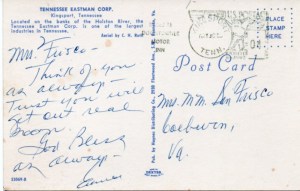 TENNESSEE EASTMAN CORP.
Kingsport, Tennessee
Located on the banks of the Holston River, the
Tennessee Eastman Corp. is one of the largest
industries in Tennessee.
Aerial by C. H. Ruth
Mrs. Frisco -
Think of you
as always -
Trust you will
get out real
soon.
God Bless
as always -
TENN.
PLACE
STAMP
HERE
Post Card
Mrs. Mm. Don Frisco
Coeburn,
Va.